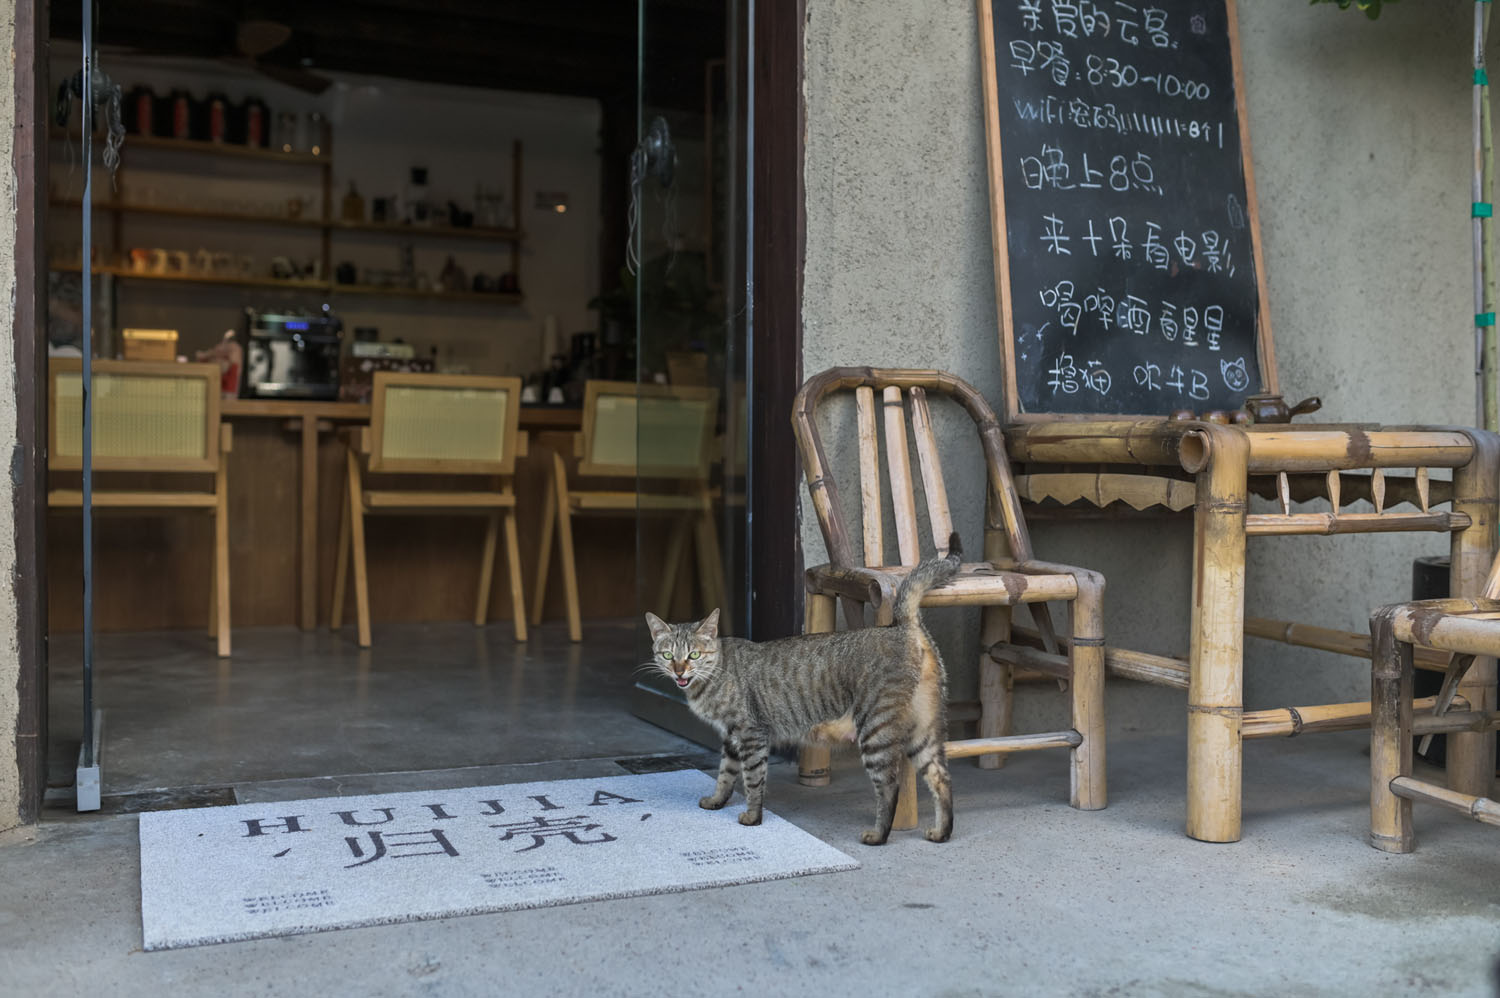 亲爱的云客
早餐:8:30~10:00
WiFi密码11111111=8个1
晚上8点
来十朵看电影
喝啤酒看星星
撸猫 吹牛B
HUIJIA
归壳
WELCOME
WELCOME
WELCOME
WELCOME
WELCOME
WELCOME
WELCOME
WELCOME
WELCOME